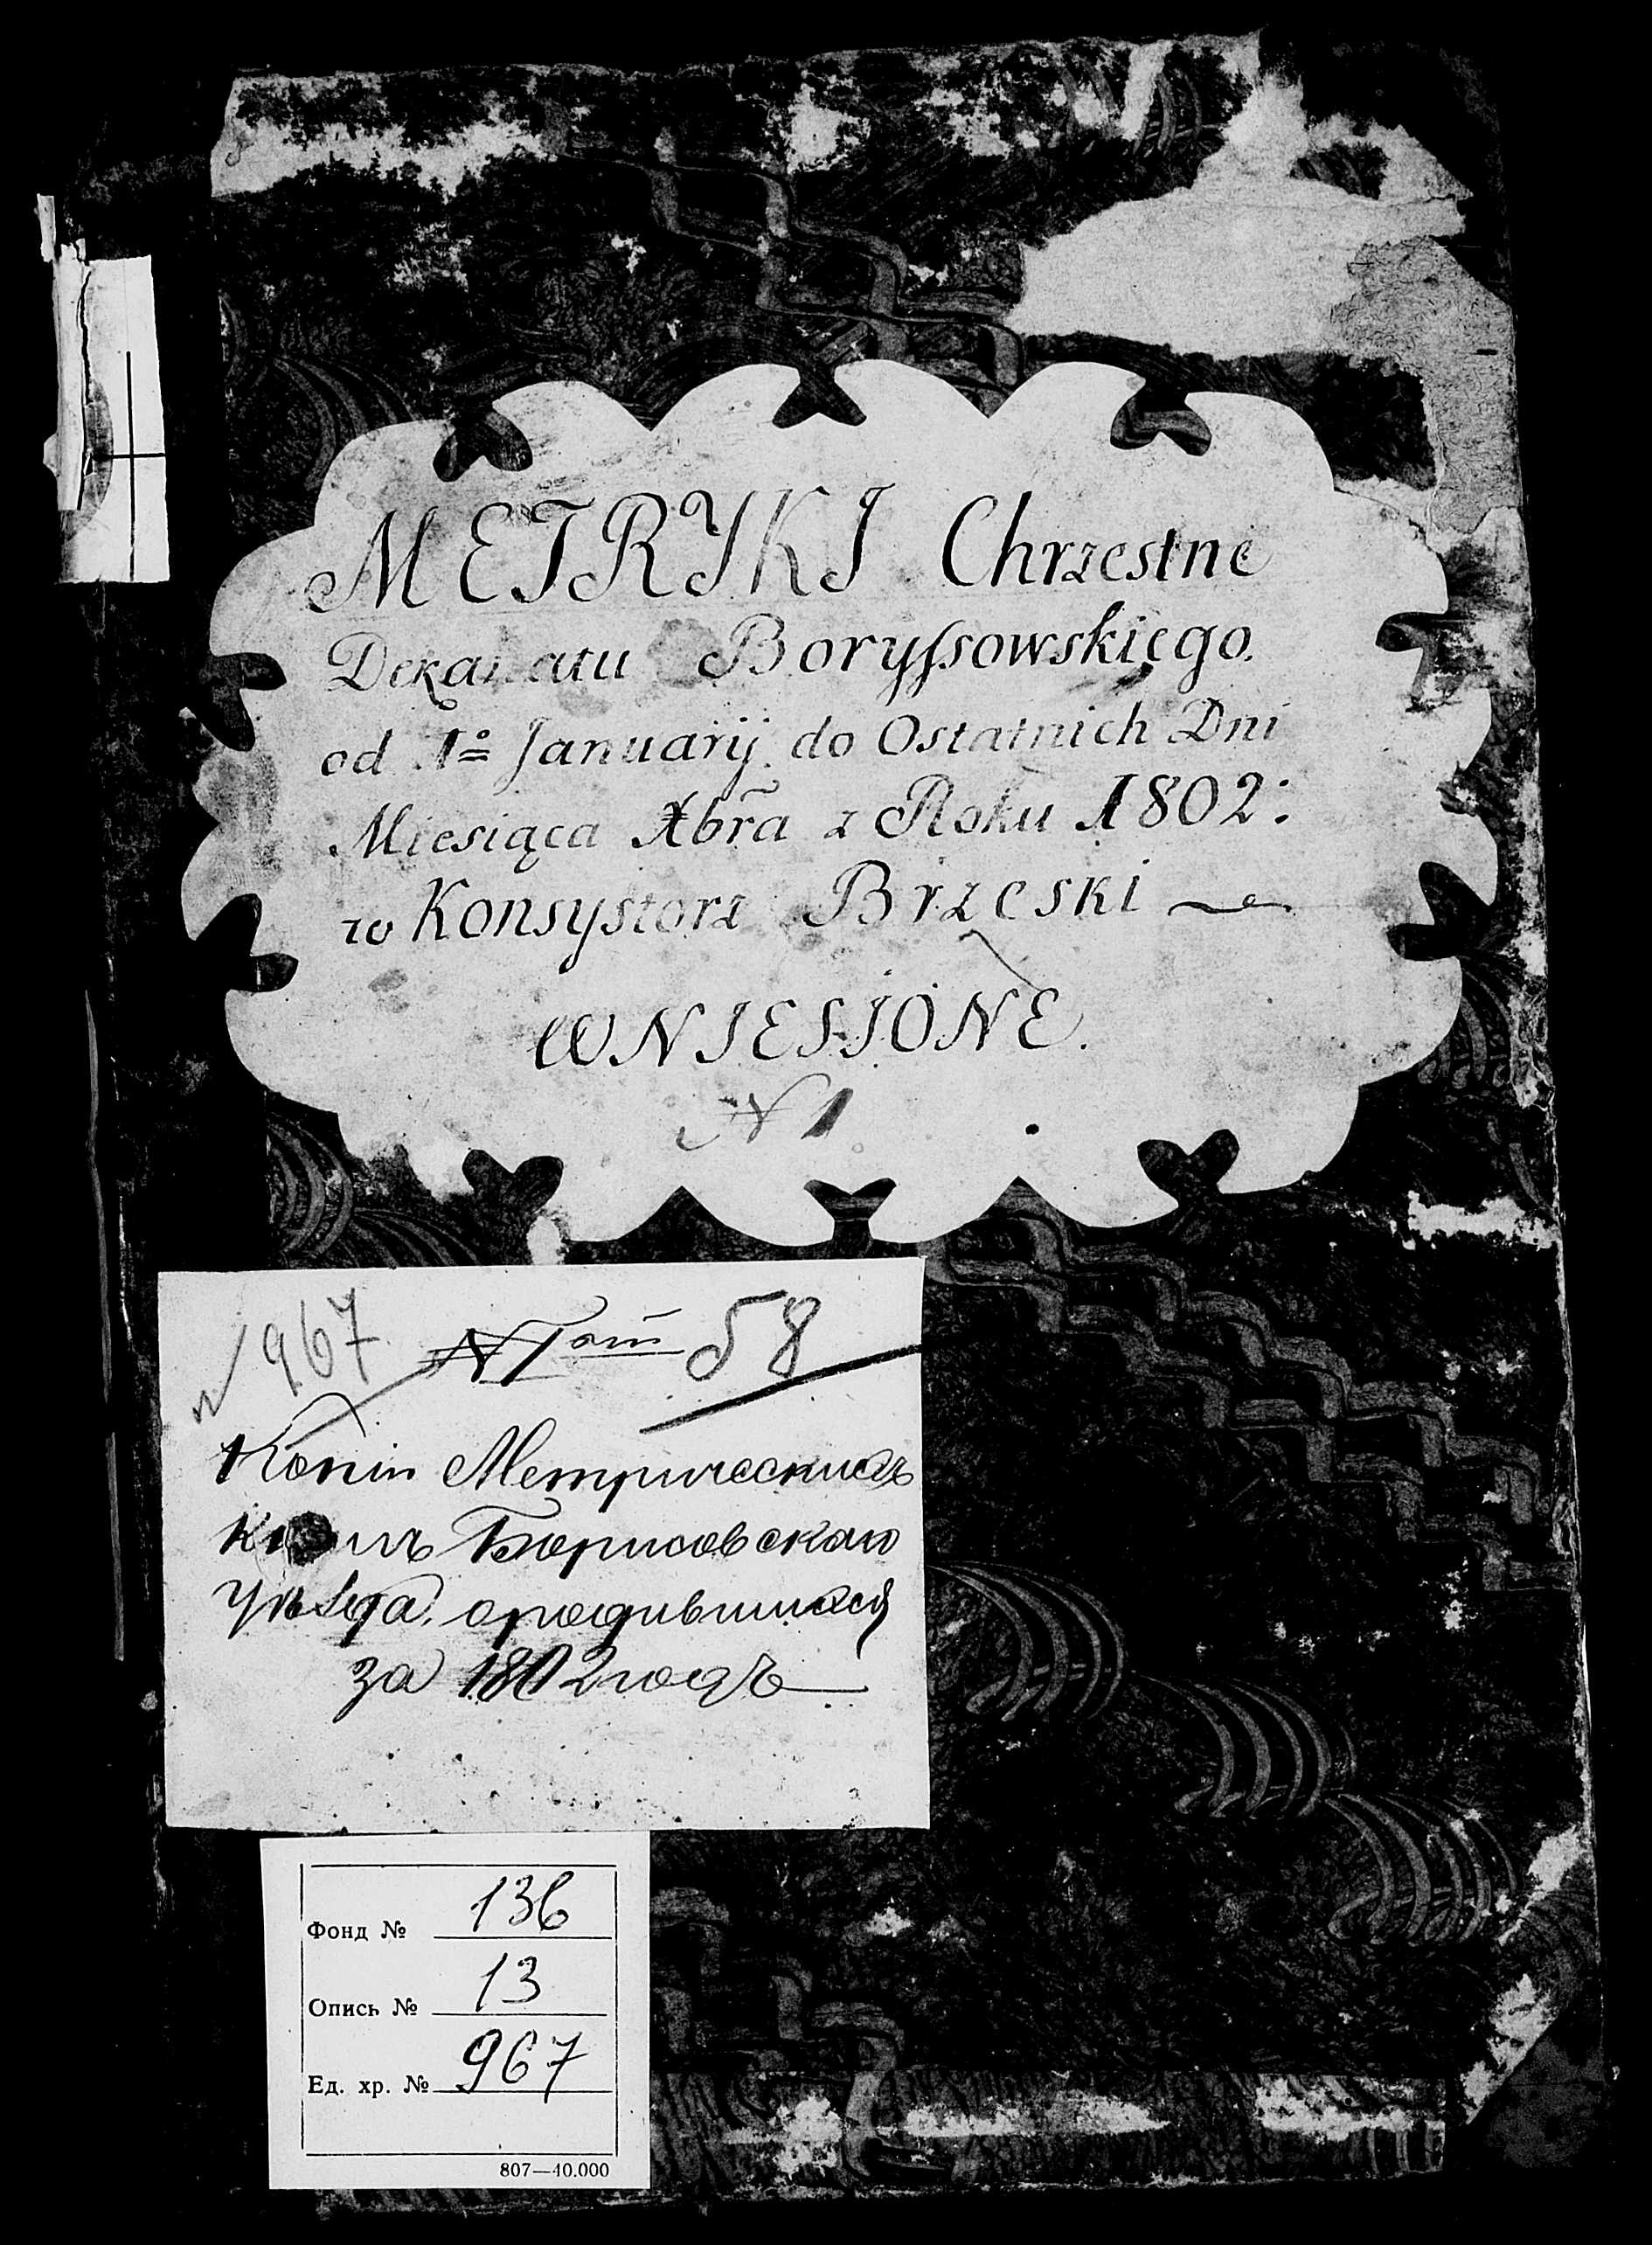 METRYKI Chrzestne
Dekanatu Boryssowskiego.
od 1º Januarij do Ostatnich Dni
Miesiąca Xbra z Roku 1802:
w Konsystorz Brzeski
WNIESIONE.
N 1
N 967 58
Копіи Метрическихъ
книгъ Борисовскаго
Уѣзда, о родившихся
за 1802 годъ
Фонд № 136
Опись № 13
Ед. хр. № 967
807—10.000